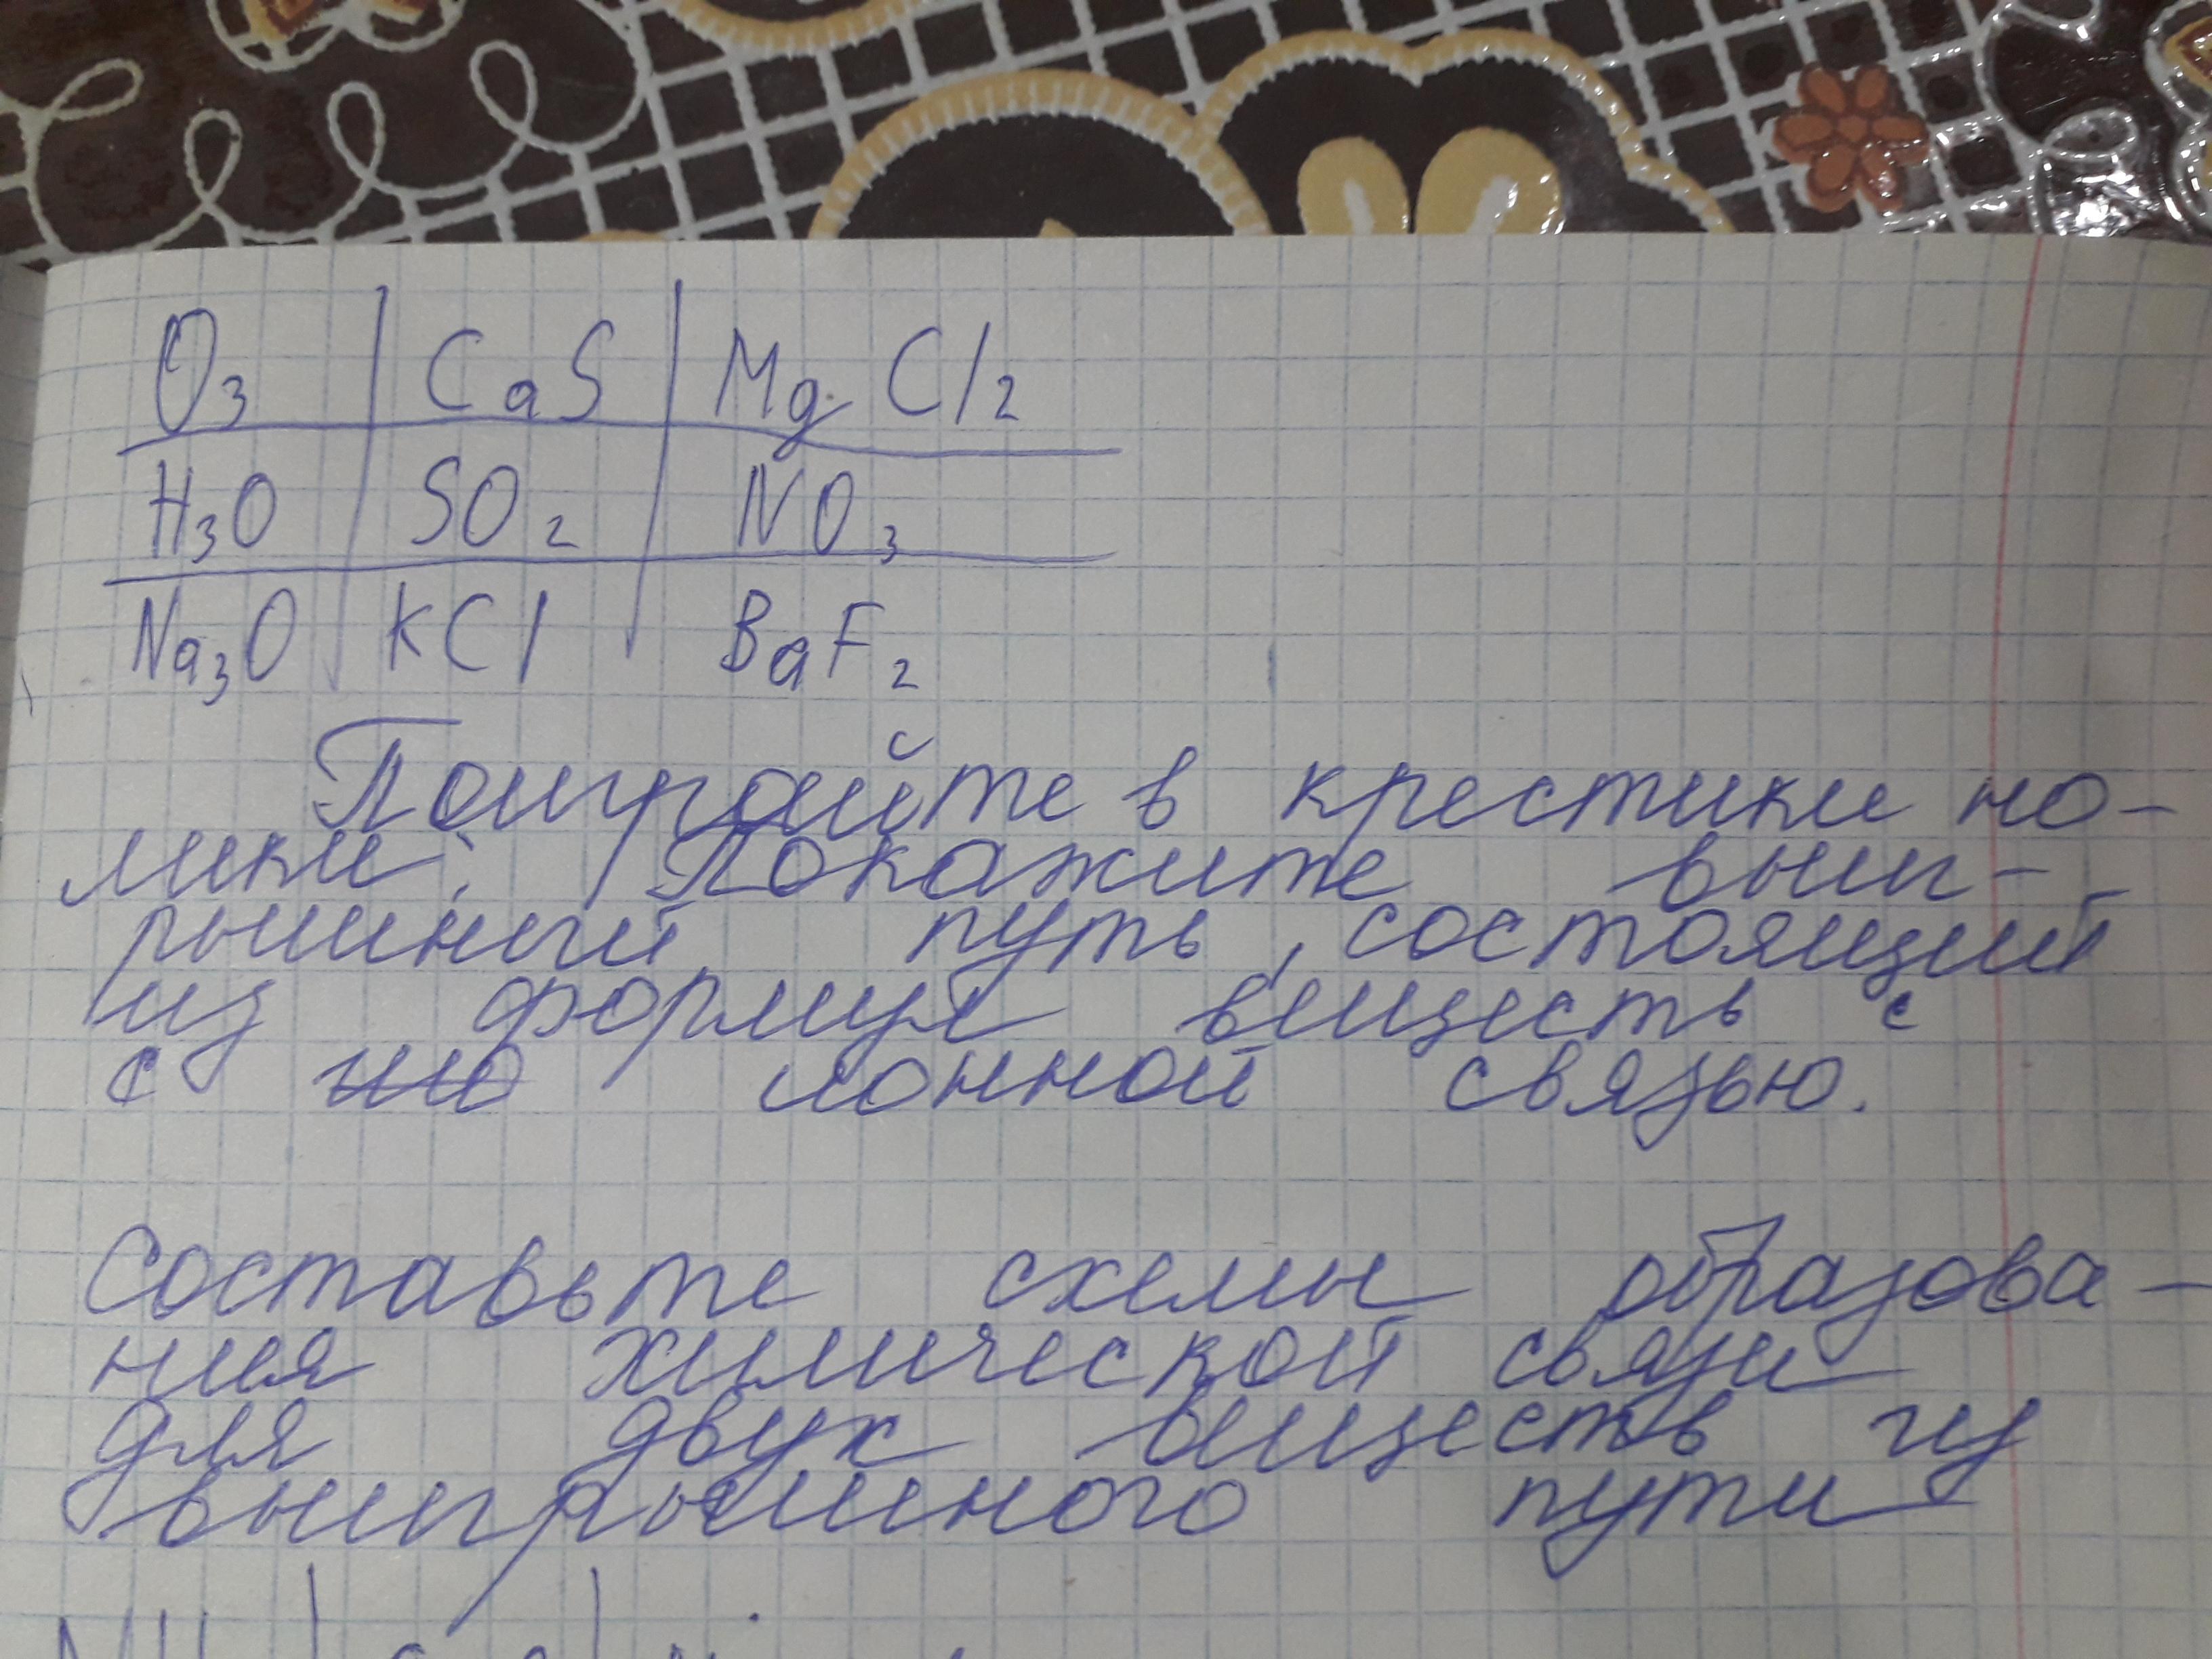 O₃ | CaS | MgCl₂
H₃O | SO₂ | NO₃
Na₃O | KCl | BaF₂
Поиграйте в крестики но-
лики. Покажите выиг-
рышный путь, состоящий
из формул веществ с
с ионной связью.
Составьте схемы образова-
ния химической связи
для двух веществ из
выигрышного пути